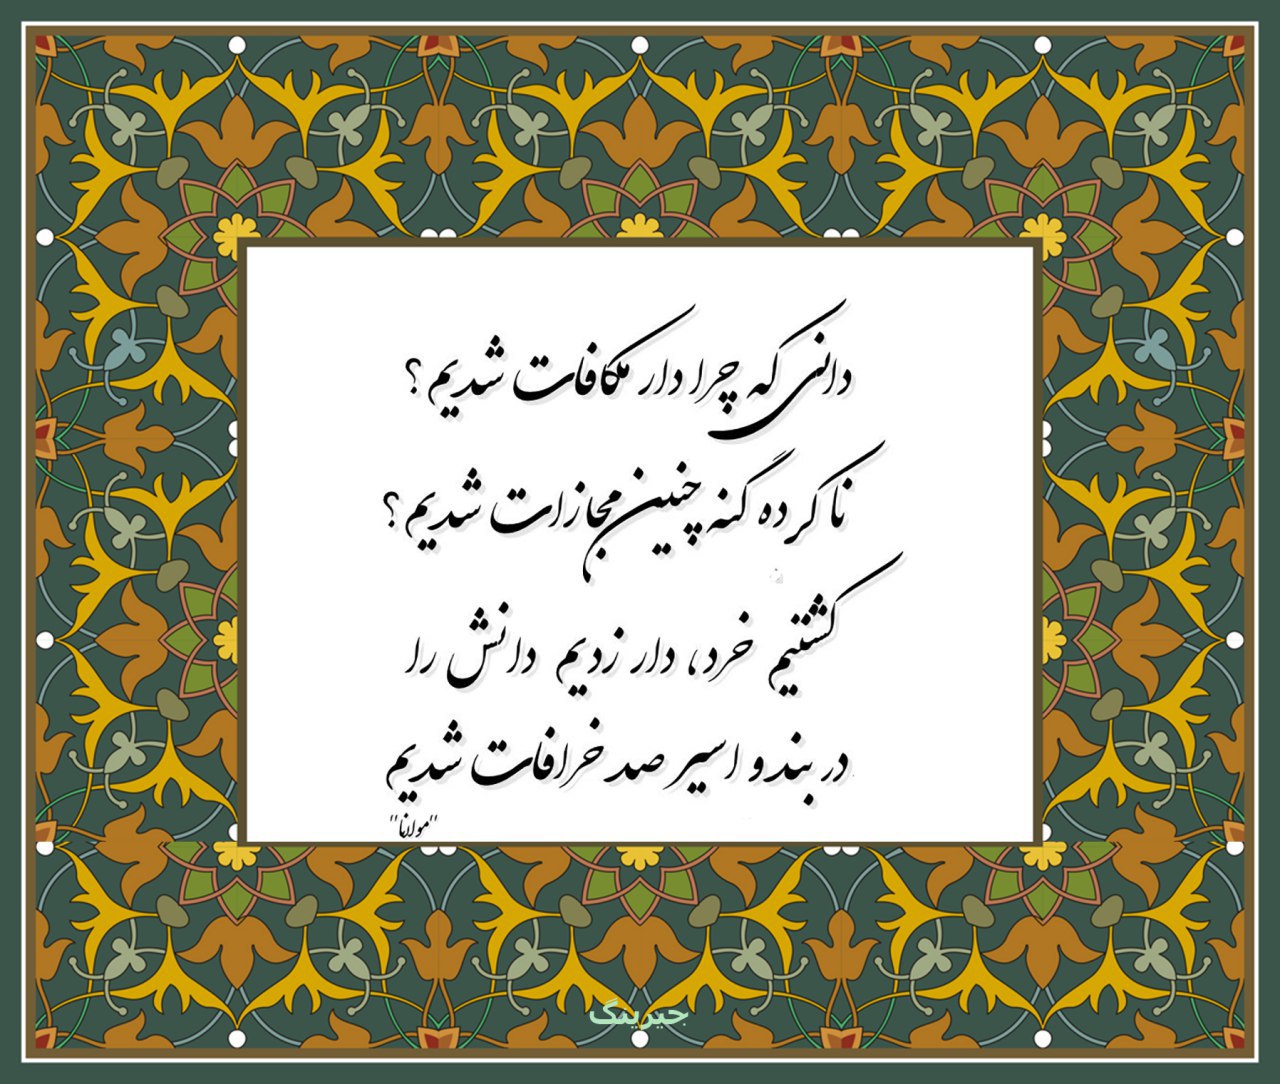 دانی که چرا دار مکافات شدیم؟
ناکرده گنه چنین مجازات شدیم؟
کشتیم خرد، دار زدیم دانش را
در بند و اسیر صد خرافات شدیم
"مولانا"
جیرینگ